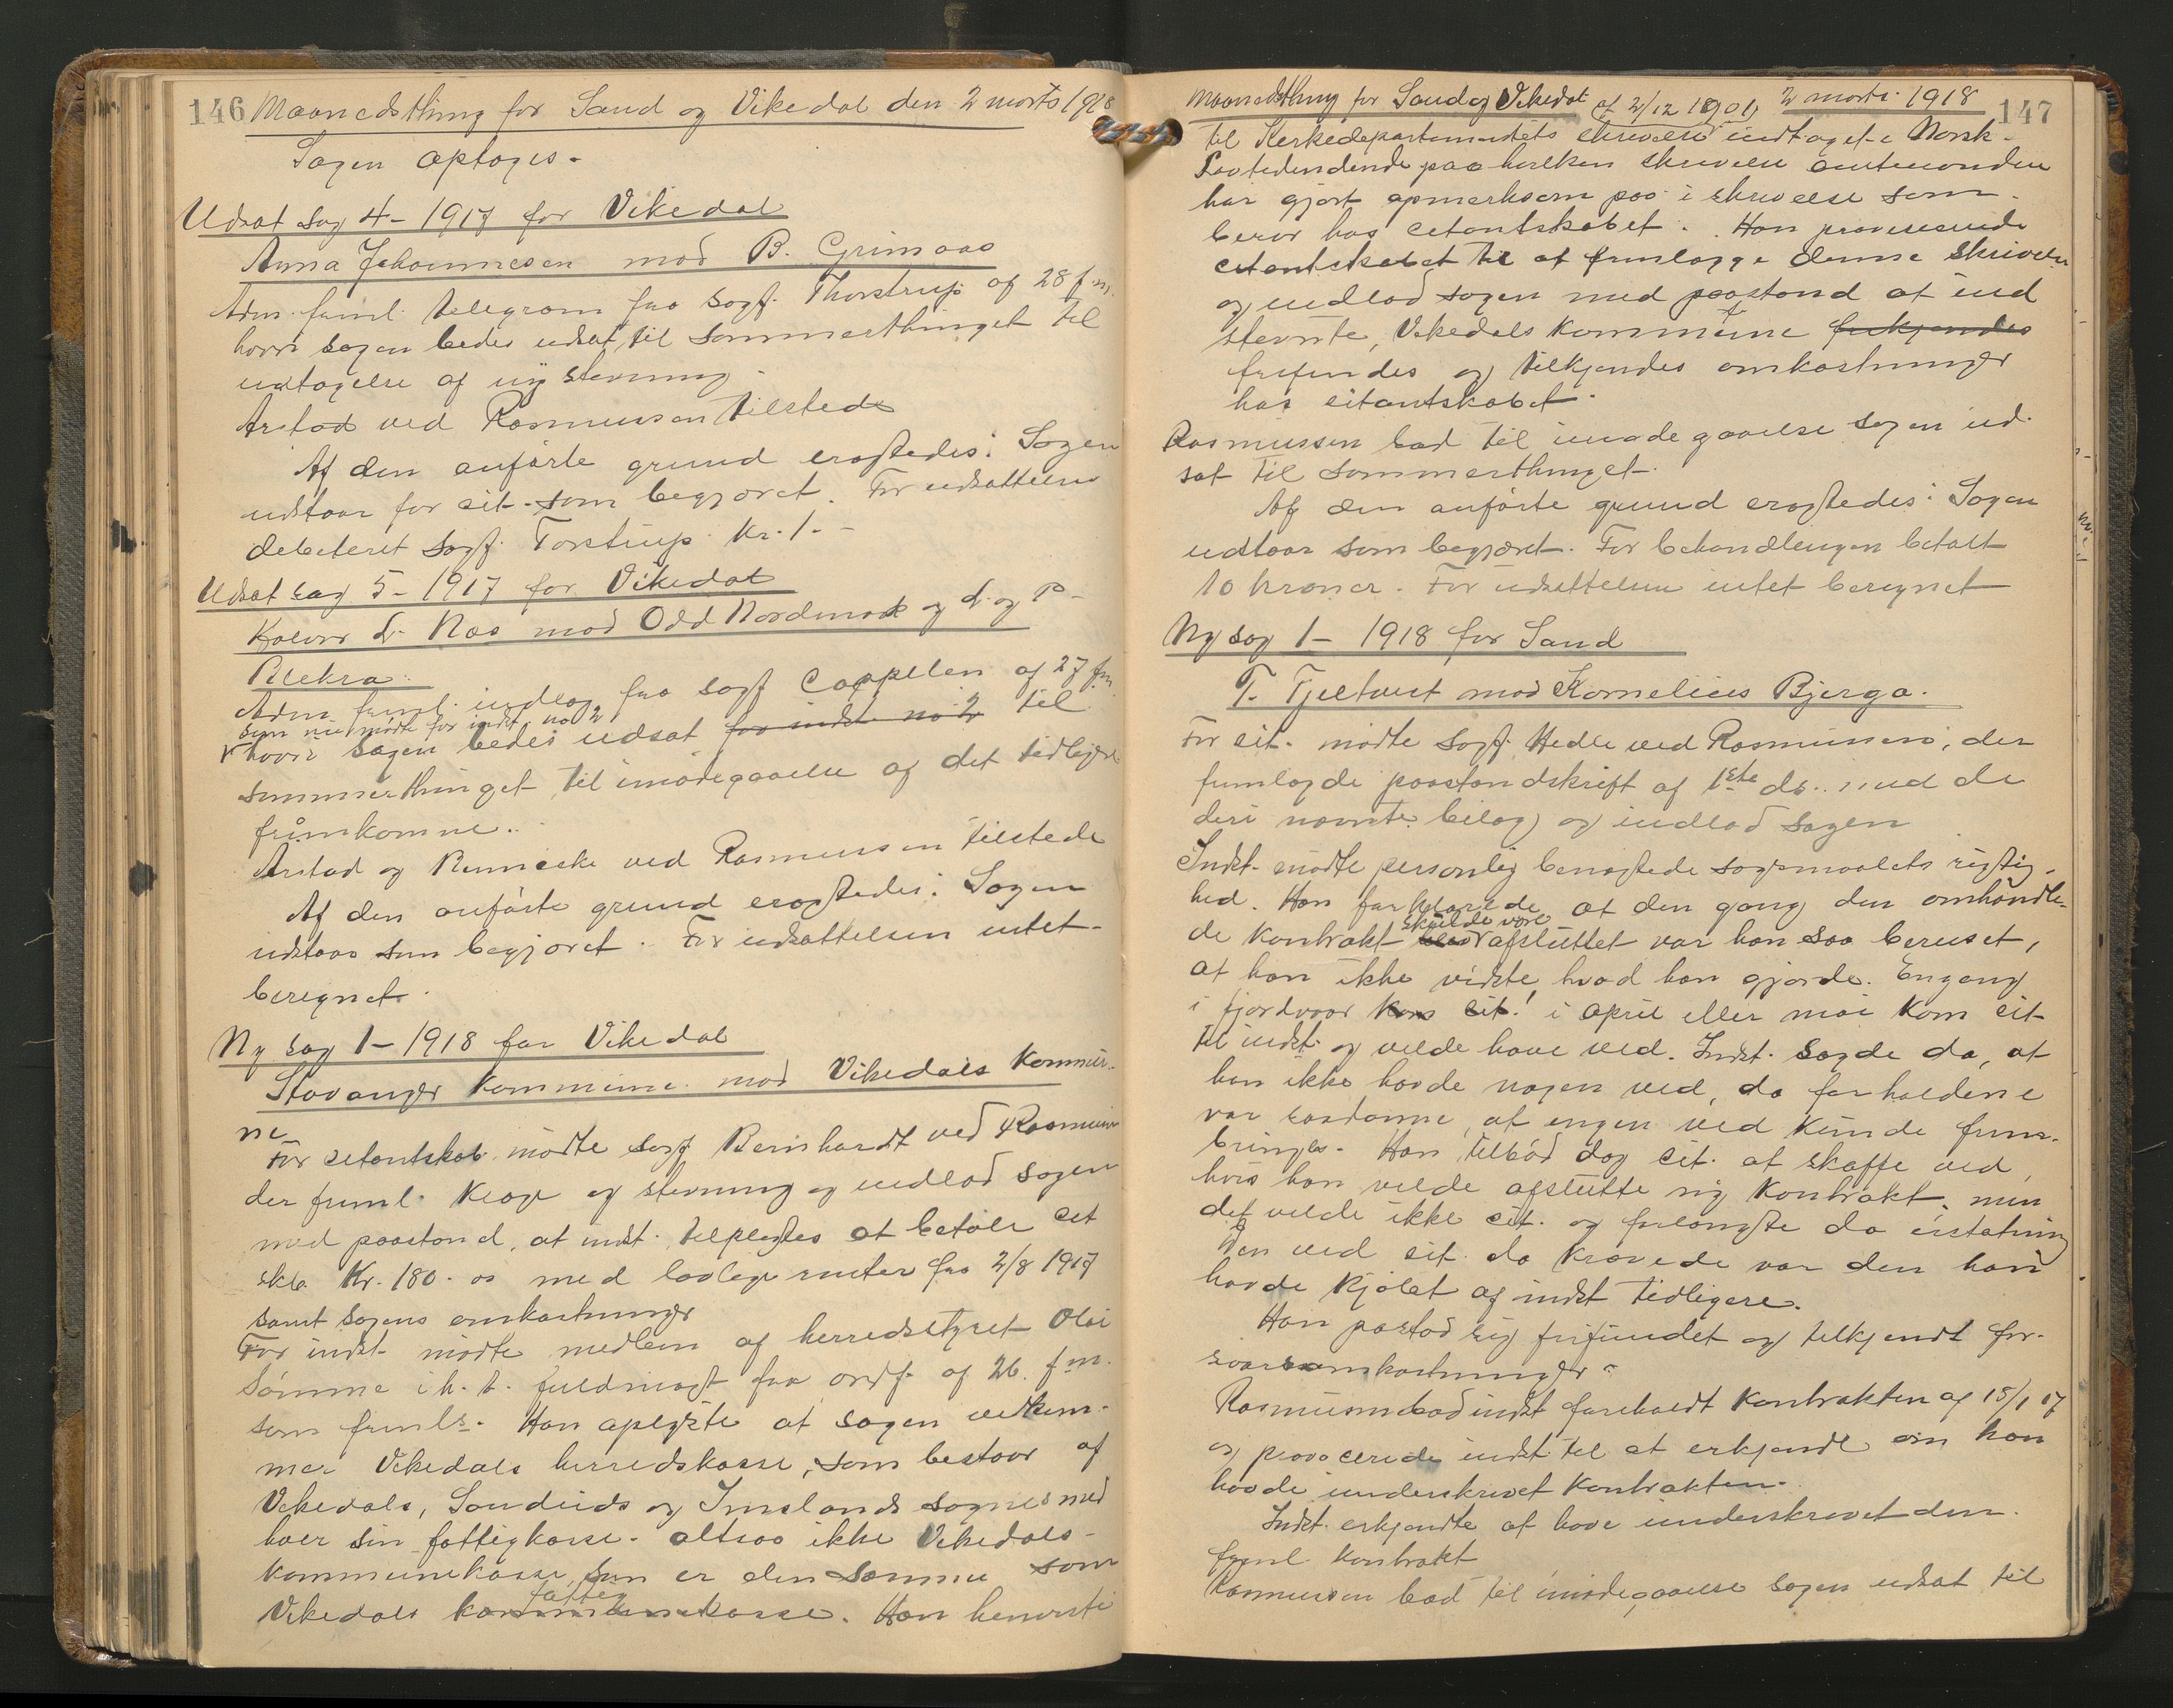 146 Maanedsthing for Sand og Vikedal den 2 marts 1918
Sagen optoges.
Udsat sag 4 - 1917 for Vikedal
Anna Johannesen mod B. Grimaas
Adm. freml. telegram fra sagf. Thorstrup af 28 f.m.
hvori sagen bedes udsat til sommerthinget til
udtagelse af ny stevning.
Arstad ved Rasmussen tilstede
Af den anførte grund eragtedes: Sagen
udstaar for cit. som begjæret. For udsættelsen
debiteret sagf. Torstrup kr. 1.-
Udsat sag 5 - 1917 for Vikedal
L. Næs mod Odd Nordmark og L. og P.
Blekra
Adm. freml. indlæg fra sagf Cappelen af 27 f.m.
som nu mødte for indst. no 2
hvori sagen bedes udsat for indst. no 2 til
sommerthinget til imødegaaelse af det tidligere
fremkomne.
Arstad og ved Rasmussen tilstede
Af den anførte grund eragtedes: Sagen
udstaar som begjæret. For udsættelsen intet
beregnet.
Ny sag 1 - 1918 for Vikedal
Stavanger kommune mod Vikedals kommu-
ne
For citantskab. mødte sagf Bernhardt ved Rasmussen
der freml. klage og stevning og indlod sagen
med paastand, at indst. tilpligtes at betale cit
skb. Kr. 180.00 med lovlige renter fra 2/8 1917
samt sagens omkostninger
For indst. mødte medlem af herredstyret Olai
Sømme i h. t. fuldmagt fra ordf. af 26. f.m.
som fremls. Han oplyste at sagen vedkom-
mer Vikedals herredskasse, som bestaar af
Vikedals, Sandeids og Imslands sogne med
hver sin fattigkasse - altsaa ikke Vikedals
kommunekasse, som er den samme som
fattig
Vikedals kommunekasse. Han henviste
Maanedsthing for Sand og Vikedal 2 marts 1918 147
af 2/12 1901
til Kirkedepartementets skrivelse indtaget i Norsk
Lovtidendende paa hvilken skrivelse amtmanden
har gjort opmerksom paa i skrivelse som
beror hos citantskabet. Han provoserede
citantskabet til at fremlægge denne skrivelse
og indlod sagen med paastand at ind
stevnte, Vikedals kommune frikjendes
frifindes og tilkjendes omkostninger
hos citantskabet.
Rasmussen bad til imødegaaelse sagen ud-
sat til sommerthinget.
Af den anførte grund eragtedes: Sagen
udstaar som begjæret. For behandlingen betalt
10 kroner. For udsættelsen intet beregnet
Ny sag 1 - 1918 for Sand
T. Tjeltveit mod Kornelius Bjerga.
For cit. mødte sagf. Hedle ved Rasmussen, der
fremlagde paastandskrift af 1ste ds. med de
deri nævnte bilag og indlod sagen
Indst. mødte personlig benægtede søgsmaalets rigtig-
hed. Han forklarede at den gang den omhandle-
skulde være
de kontrakt blev afsluttet var han saa beruset,
at han ikke vidste, hvad han gjorde. Engang
i fjordvaar kom cit. i april eller mai kom cit
til indst. og vilde have ved. Indst. sagde da, at
han ikke havde nogen ved, da forholdene
var saadanne, at ingen ved kunde frem-
bringes. Han tilbød dog cit. at skaffe ved
hvis han vilde afslutte ny kontrakt, men
det vilde ikke cit. og forlangte da erstatning
Den ved cit. da krævede var den han
havde kjøbt af indst tidligere.
Han paastod sig frifundet og tilkjendt for-
svarsomkostninger.
Rasmussen bad indst foreholdt kontrakten af 15/1 17
og provocerede indst til at erkjende om han
havde underskrevet kontrakten.
Indst. erkjendte at have underskrevet den
freml kontrakt
Rasmussen bad til imødegaaelse sagen udsat til